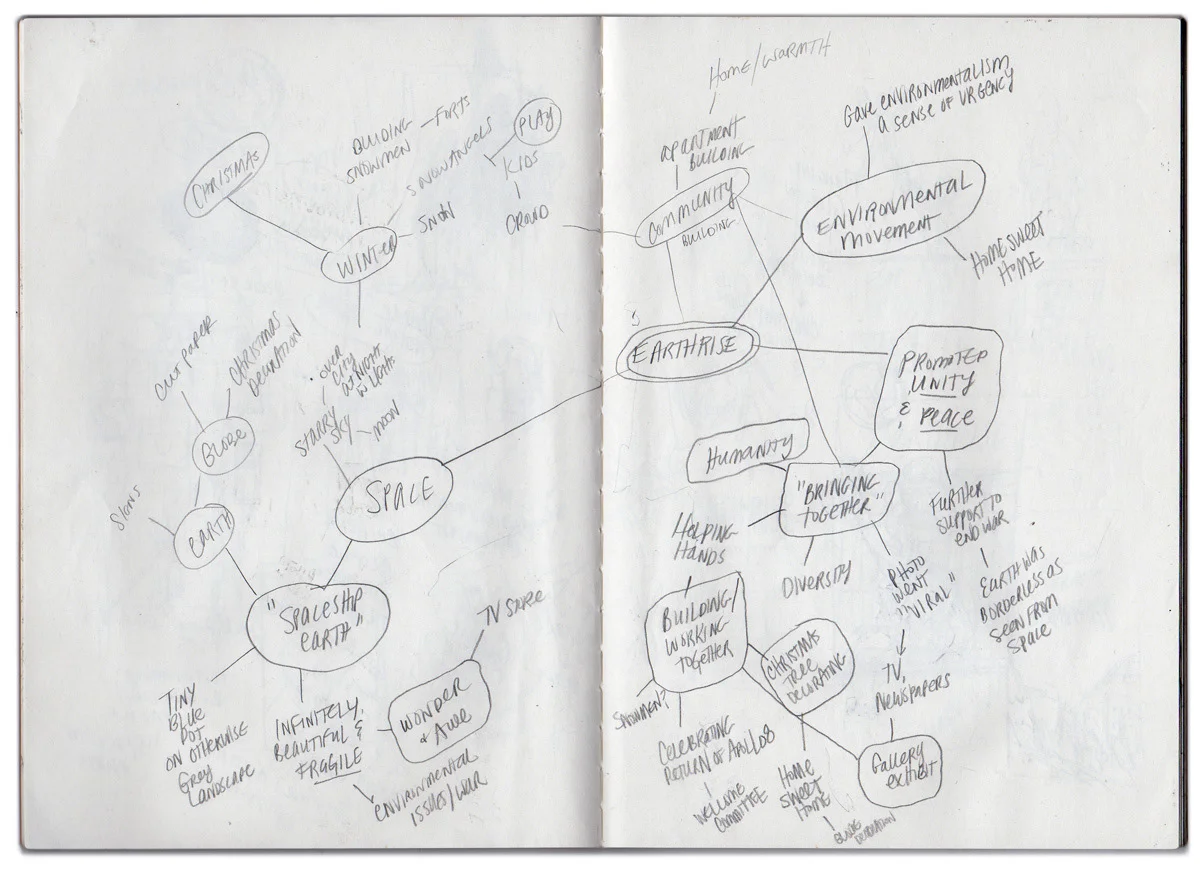 CHRISTMAS
BUILDING - FORTS
SNOWMEN
SNOWANGELS
PLAY
KIDS
CROWD
SNOW
WINTER
CUT PAPER
CHRISTMAS
DECORATION
GLOBE
OVER
CITY
AT NIGHT
W LIGHTS
STARRY
SKY
MOON
SPACE
SIGNS
EARTH
"SPACESHIP
EARTH"
TV STORE
TINY
BLUE
DOT
ON OTHERWISE
GREY
LANDSCAPE
INFINITELY,
BEAUTIFUL &
FRAGILE
WONDER
& AWE
ENVIRONMENTAL
ISSUES/WAR
HOME/WARMTH
APARTMENT
BUILDING
COMMUNITY
BUILDING
GAVE ENVIRONMENTALISM
A SENSE OF URGENCY
ENVIRONMENTAL
MOVEMENT
HOME SWEET
HOME
EARTHRISE
PROMOTED
UNITY
& PEACE
HUMANITY
"BRINGING
TOGETHER"
HELPING
HANDS
DIVERSITY
PHOTO
WENT
"VIRAL"
TV,
NEWSPAPERS
FURTHER
SUPPORT TO
END WAR
EARTH WAS
BORDERLESS AS
SEEN FROM
SPACE
BUILDING/
WORKING
TOGETHER
CHRISTMAS
TREE
DECORATING
SNOWMEN?
CELEBRATING
RETURN OF APOLLO 8
WELCOME
COMMITTEE
HOME
SWEET
HOME
GLOBE
DECORATION
GALLERY
EXHIBIT